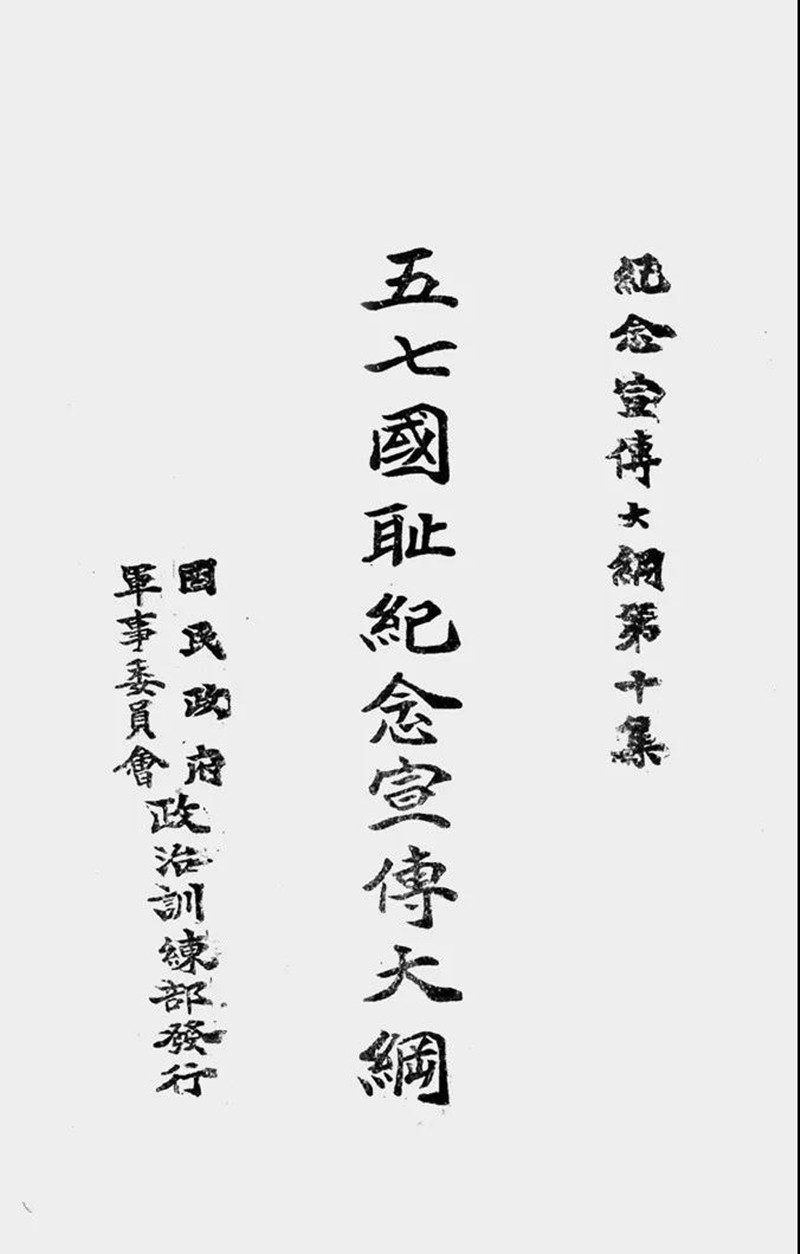 紀念宣傳大綱第十集
五七國耻紀念宣傳大綱
國民政府
軍事委員會
政治訓練部發行